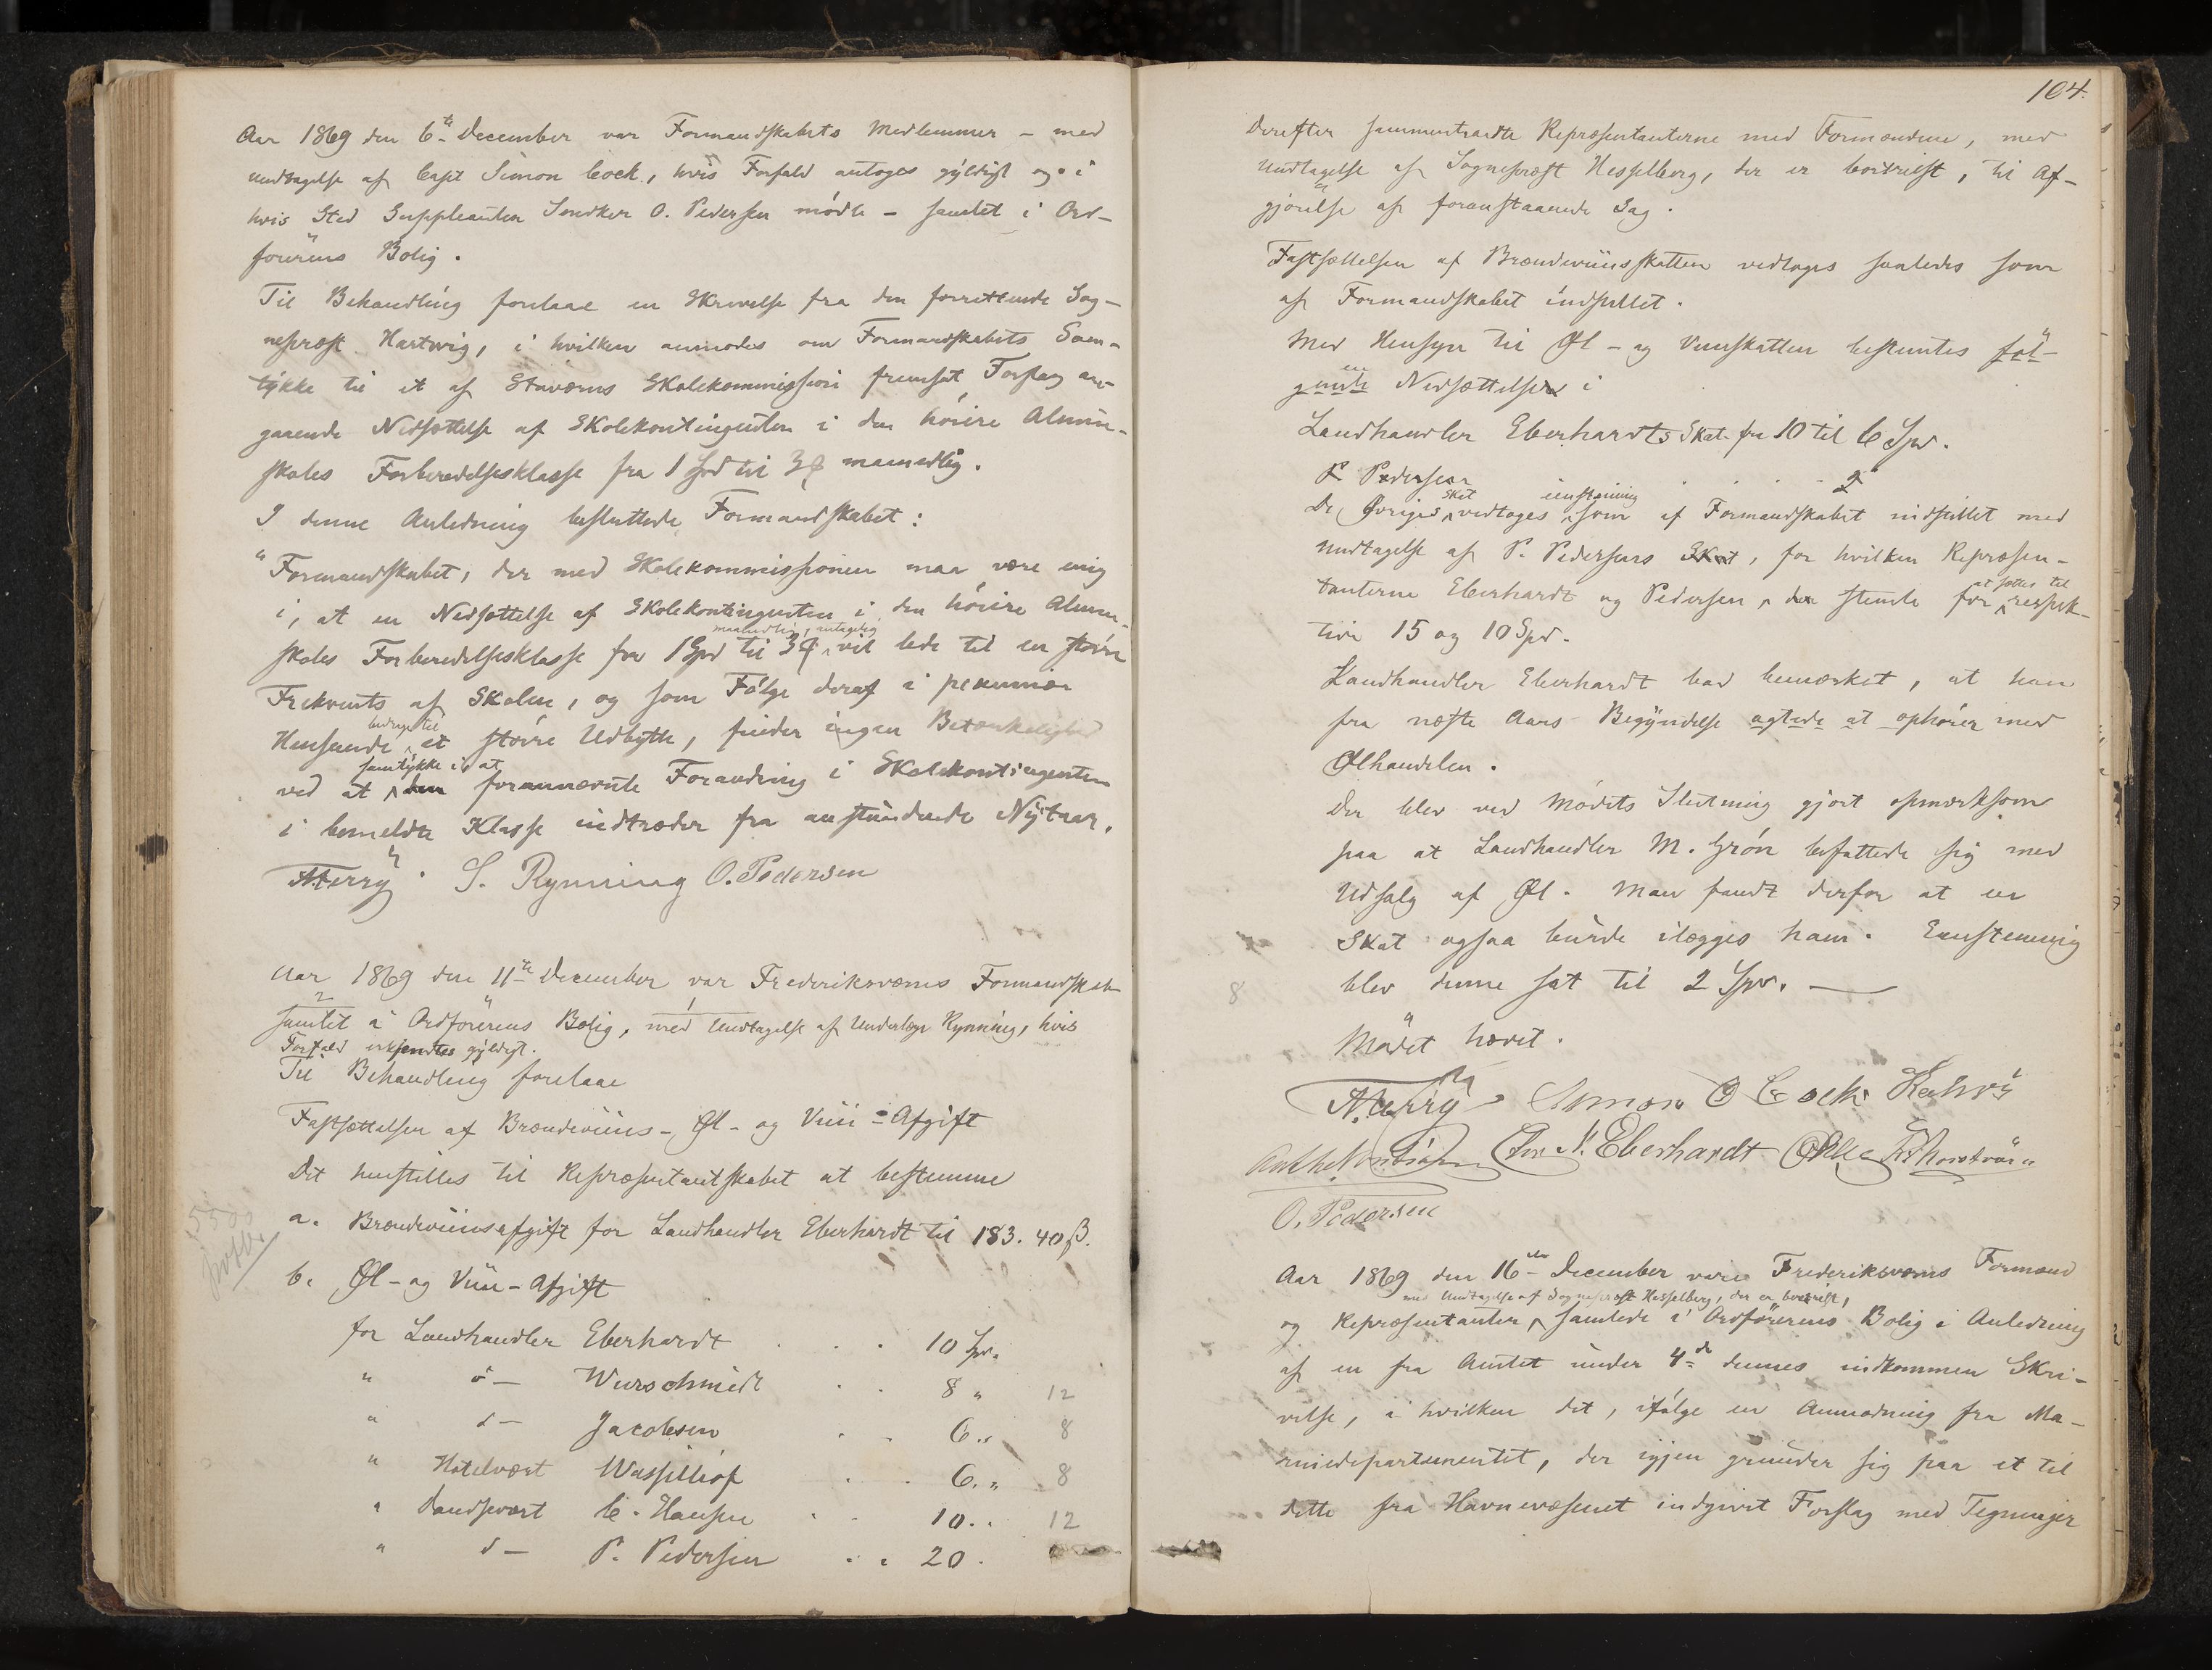 Aar 1869 den 6te December var Formandskabets Medlemmer – med
undtagelse af Capt Simon Cock, hvis Forfald antoges gyldigt og i
hvis Sted Suppleanten O. Pedersen mödte – samlet i Ord-
förerens Bolig.
Til Behandling forelaae en Skrivelse fra den forrettende Sog-
nepræst Hartwig, i hvilken anmodes om Formandskabets Sam-
tykke til et af Staværns Skolekommission fremsat Forslag an-
gaaende Nedsættelse af Skolekontingenten i den höiere Almu-
skoles Forberedelsesklasse fra 1 Spd til 3 maanedlig.
I denne Anledning besluttede Formandskabet:
"Formandskabet, der med Skolekommissionen maa være enig
i, at en Nedsættelse af Skolekontingenten i den höiere Almu-
maanedlig, antagelig
skoles Forberedelsesklasse fra 1 Spd til 3 vil lede til en större
Frekvents af Skolen, og som Fölge deraf i pekuniær
bidrage til
Henseende et större Udbytte, finder ingen Betænkelighed
samtykke i at
ved at den forannævnte Forandring i Skolekontingenten
i bemeldte Klasse indtræder fra anstundende Nytaar.
N. Ferry. S. Rynning O. Pedersen
Aar 1869 den 11te December var Frederiksværns Formandskab
samlet i Ordförerens Bolig, med Undtagelse af Underlæge Rynning, hvis
Forfald erkjendtes gyldigt.
Til Behandling forelaae
Fastsættelsen af Brændeviins-, Øl- og Viin-Afgift
Det henstilles til Repræsentantskabet at bestemme
a. Brændeviinsafgift for Landhandler Eberhardt til 183. 40 β.
b. Øl- og Viin-Afgift
for Landhandler Eberhardt . . . 10 Spd.
" d– Wurschmidt . . 8 " 12
" d– Jacobsen . . 6 " 8
" Hotelvært Wassilliof . . 6. " 8
" Landsvært C. Hansen . . 10. . 12
" d– P. Pedersen . . 20.
104.
Derefter sammentraadte Repræsentanterne med Formændene, med
Undtagelse af Sognepræst Hesselberg, der er bortreist, til Af-
gjörelse af foranstaaende Sag.
Fastsættelsen af Brændeviinsskatten vedtoges saaledes som
af Formandskabet indstillet.
Med Hensyn til Øl- og Viinskatten bestemtes föl-
en
gende Nedsættelse i
Landhandler Eberhardts Skat fra 10 til 6 Spd.
P. Pedersen . . . . 2
Skat eenstemmig
De Øvriges vedtoges som af Formandskabet indstillet med
Undtagelse af P. Pedersens Skat, for hvilken Repræsen-
at sættes til
tanterne Eberhardt og Pedersen stemte for respek-
tive 15 og 10 Spd.
Landhandler Eberhardt bad bemærket, at han
fra næste Aars Begyndelse agtede at ophörer med
Ølhandelen.
Der blev ved Mödets Slutning gjort opmærksom
paa at Landhandler M. Grön befattede sig med
Udsalg af Øl. Man fandt derfor at en
Skat ogsaa burde ilægges ham. Eenstemmig
8 blev denne sat til 2 Spd.
Mödet hævet.
N. Ferry Simon Cock
Eberhardt
O. Pedersen
Aar 1869 den 16de December vare Frederiksværns Formænd
med Undtagelse af Sognepræst Hesselberg, der er bortreist,
og Repræsentanter samlede i Ordförerens Bolig i Anledning
af en fra Amtet under 4de dennes indkommen Skri-
velse, i hvilken det, ifölge en Anmodning fra Ma-
rinedepartementet, der igjen grunder sig paa et til
dette fra Havnevæsenet indgivet Forslag med Tegninger